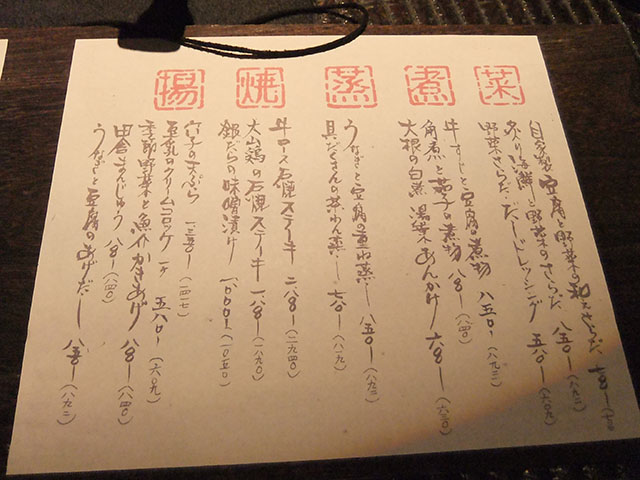 菜
自家製豆腐と野菜の和えさらだ 七五〇ー
炙り海鮮と野菜のさらだ 八五〇ー(八九二)
野菜さらだ だしドレッシング 五八〇ー(六〇九)
煮
牛すじと豆腐の煮物 八五〇ー(八九二)
角煮と茄子の煮物 八〇〇ー(八四〇)
大根の白煮 湯葉あんかけ 六〇〇ー(六三〇)
蒸
うなぎと豆腐の重ね蒸し 八五〇ー(八九二)
具だくさんの茶わん蒸し 七八〇ー(八一九)
焼
牛ロース石焼ステーキ 二八〇〇ー(二九四〇)
大山鶏の石焼ステーキ 一八〇〇ー(一八九〇)
銀だらの味噌漬け 一〇〇〇ー(一〇五〇)
揚
穴子の天ぷら 一三五〇ー(一四一七)
豆乳のクリームコロッケ 一ケ 五八〇ー(六〇九)
季節野菜と魚介かきあげ 八〇〇ー(八四〇)
田舎まんじゅう 八〇〇ー(八四〇)
うなぎと豆腐のあげだし 八五〇ー(八九二)